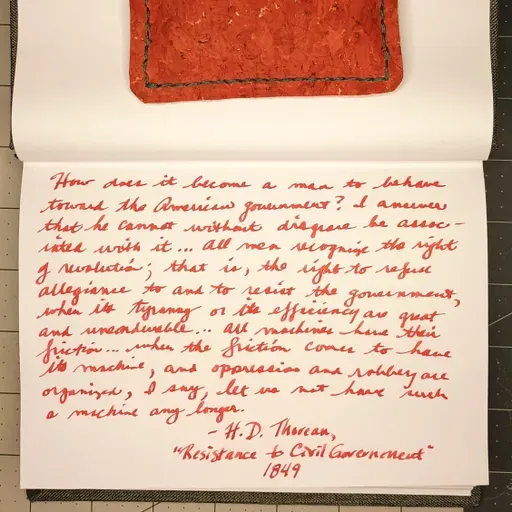 How does it become a man to behave
toward the American government? I answer
that he cannot without disgrace be assoc-
iated with it... All men recognize the right
of revolution; that is, the right to refuse
allegiance to and to resist the government,
when its tyranny or its efficiency are great
and unendurable... all machines have their
friction... when the friction comes to have
its machine, and oppression and robbery are
organized, I say, let us not have such
a machine any longer.
- H.D. Thoreau,
"Resistance to Civil Government"
1849